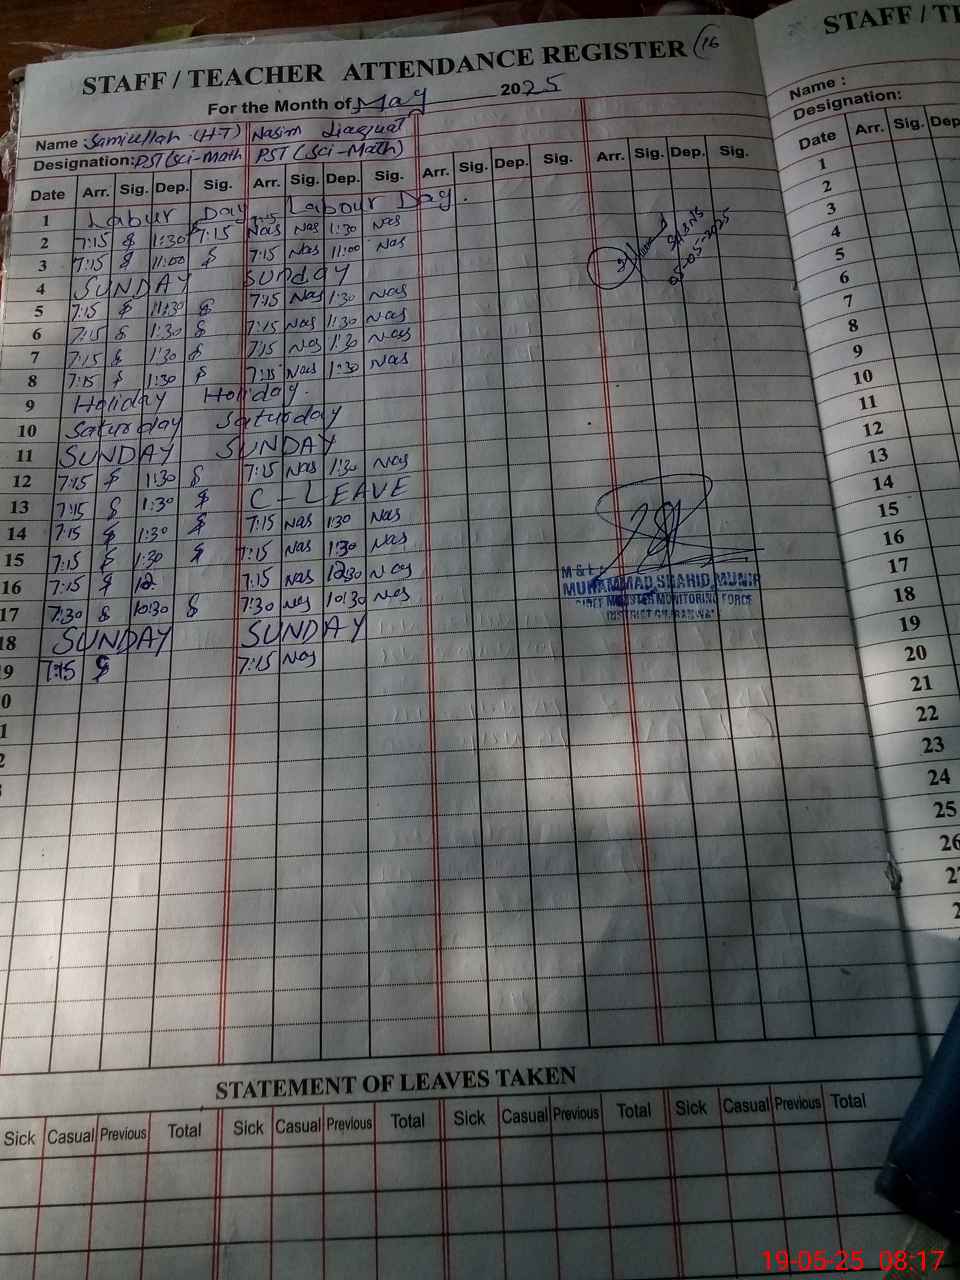 STAFF / TEACHER ATTENDANCE REGISTER 16
For the Month of May 2025
Name : Samiullah (H-T) Nasim Liaquat
Designation: PST (Sci-Math PST (Sci-Math)
Date Arr. Sig. Dep. Sig. Arr. Sig. Dep. Sig. Arr. Sig. Dep. Sig. Arr. Sig. Dep. Sig.
1 Labour Day Labour Day.
2 7:15 1:30 7:15 7:15 Nas Nas 1:30 Nas
3 7:15 11:00 7:15 Nas 11:00 Nas
4 SUNDAY SUNDAY
5 7:15 11:30 7:15 Nas 1:30 Nas
6 7:15 1:30 7:15 Nas 1:30 Nas
7 7:15 1:30 7:15 Nas 1:30 Nas
8 7:15 1:30 7:15 Nas 1:30 Nas
9 Holiday Holiday.
10 Saturday Saturday
11 SUNDAY SUNDAY
12 7:15 1:30 7:15 Nas 1:30 Nas
13 7:15 1:30 C-LEAVE
14 7:15 1:30 7:15 Nas 1:30 Nas
15 7:15 1:30 7:15 Nas 1:30 Nas
16 7:15 12 7:15 Nas 12:30 Nas
17 7:30 10:30 7:30 Nas 10:30 Nas
18 SUNDAY SUNDAY
19 7:15 7:15 Nas
05-05-2025
M & E A
MUHAMMAD SHAHID MUNIR
CHIEF MINISTER MONITORING FORCE
STATEMENT OF LEAVES TAKEN
Sick Casual Previous Total Sick Casual Previous Total Sick Casual Previous Total Sick Casual Previous Total
STAFF / TE
Name :
Designation:
Date Arr. Sig. Dep
1
2
3
4
5
6
7
8
9
10
11
12
13
14
15
16
17
18
19
20
21
22
23
24
25
26
19-05-25 08:17